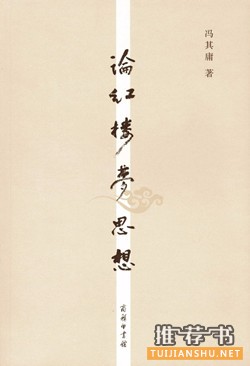 冯其庸 著
論红楼夢思想
商務印書館
推荐书
TUIJIANSHU.NET